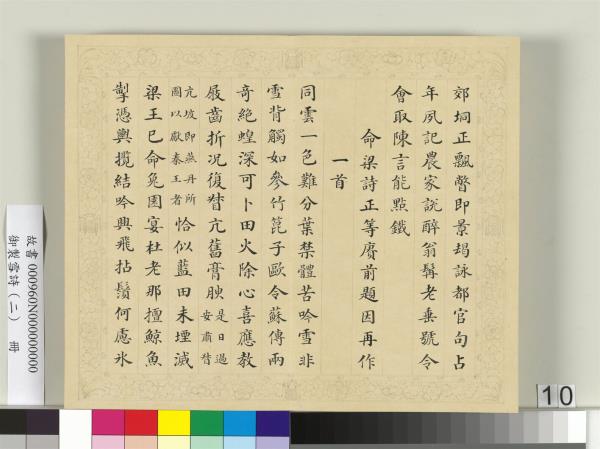 郊坰正飄瞥即景朅詠都官句占
年夙記農家說醉翁髯老垂號令
會取陳言能點鐵
命梁詩正等賡前題因再作
一首
同雲一色難分葉禁體苦吟雪非
雪背觸如參竹篦子歐令蘇傳兩
奇絕蝗深可卜田火除心喜應教
屐齒折況復督亢舊膏腴是日過安肅督
亢坡即燕丹所圖以獻秦王者恰似藍田未堙滅
梁王已命兔園宴杜老那擅鯨魚
掣憑輿攬結吟興飛拈鬚何慮氷
故書 000960N000000000
御製雪詩（二） 冊
10